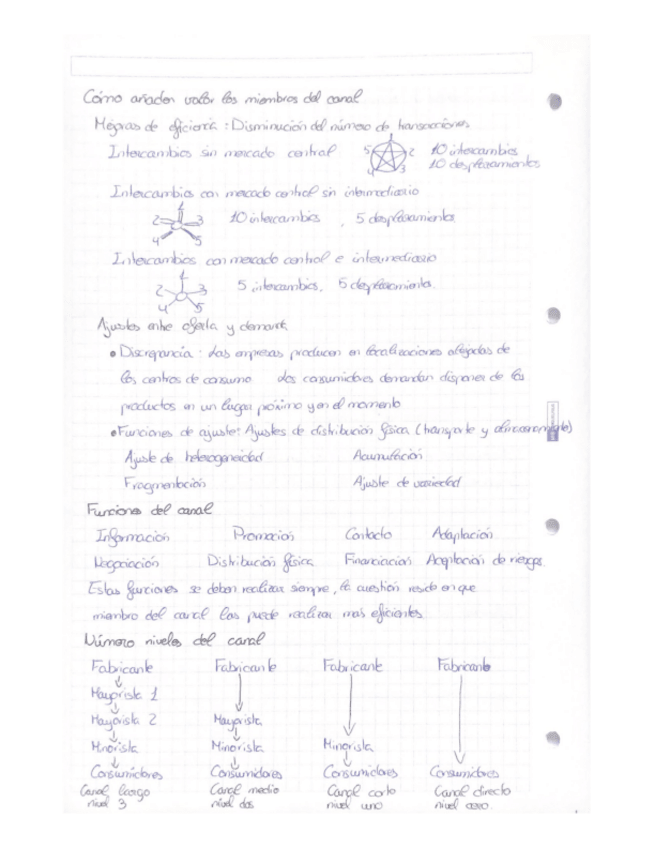 Cómo añaden valor los miembros del canal
Mejoras de eficiencia: Disminución del número de transacciones
Intercambios sin mercado central 5 2 4 3 10 intercambios
10 desplazamientos
Intercambios con mercado central sin intermediario
1 2 3 4 5 10 intercambios, 5 desplazamientos
Intercambios con mercado central e intermediario
1 2 3 4 5 5 intercambios, 5 desplazamientos.
Ajustes entre oferta y demanda
• Discrepancia: Las empresas producen en localizaciones alejadas de
los centros de consumo Los consumidores demandan disponer de los
productos en un lugar próximo y en el momento
• Funciones de ajuste: Ajustes de distribución física (transporte y almacenamiento)
Ajuste de heterogeneidad Acumulación
Fragmentación Ajuste de variedad
Funciones del canal
Información Promoción Contacto Adaptación
Negociación Distribución física Financiación Aceptación de riesgos.
Estas funciones se deben realizar siempre, la cuestión reside en que
miembro del canal las puede realizar más eficientes
Número niveles del canal
Fabricante Fabricante Fabricante Fabricante
Mayorista 1
Mayorista 2 Mayorista
Minorista Minorista Minorista
Consumidores Consumidores Consumidores Consumidores
Canal largo Canal medio Canal corto Canal directo
nivel 3 nivel dos nivel uno nivel cero.